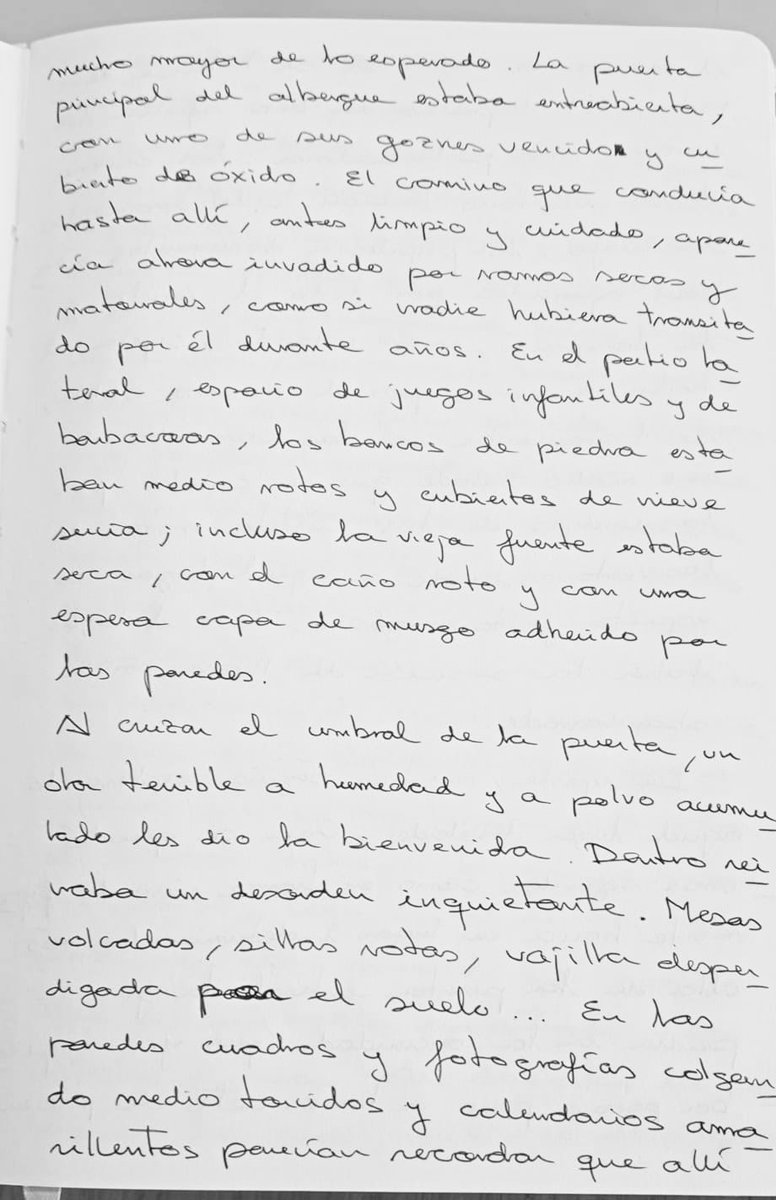 mucho mayor de lo esperado. La puerta
principal del albergue estaba entreabierta,
con uno de sus goznes vencido y cu
bierto de óxido. El camino que conducía
hasta allí, antes limpio y cuidado, apare
cía ahora invadido por ramas secas y
matorrales, como si nadie hubiera transita
do por él durante años. En el patio la
teral, espacio de juegos infantiles y de
barbacoas, los bancos de piedra esta
ban medio rotos y cubiertos de nieve
sucia; incluso la vieja fuente estaba
seca, con el caño roto y con una
espesa capa de musgo adherido por
las paredes.
Al cruzar el umbral de la puerta, un
olor terrible a humedad y a polvo acumu
lado les dio la bienvenida. Dentro rei
naba un desorden inquietante. Mesas
volcadas, sillas rotas, vajilla desper
digada por el suelo... En las
paredes cuadros y fotografías colgan
do medio torcidos y calendarios ama
rillentos parecían recordar que allí